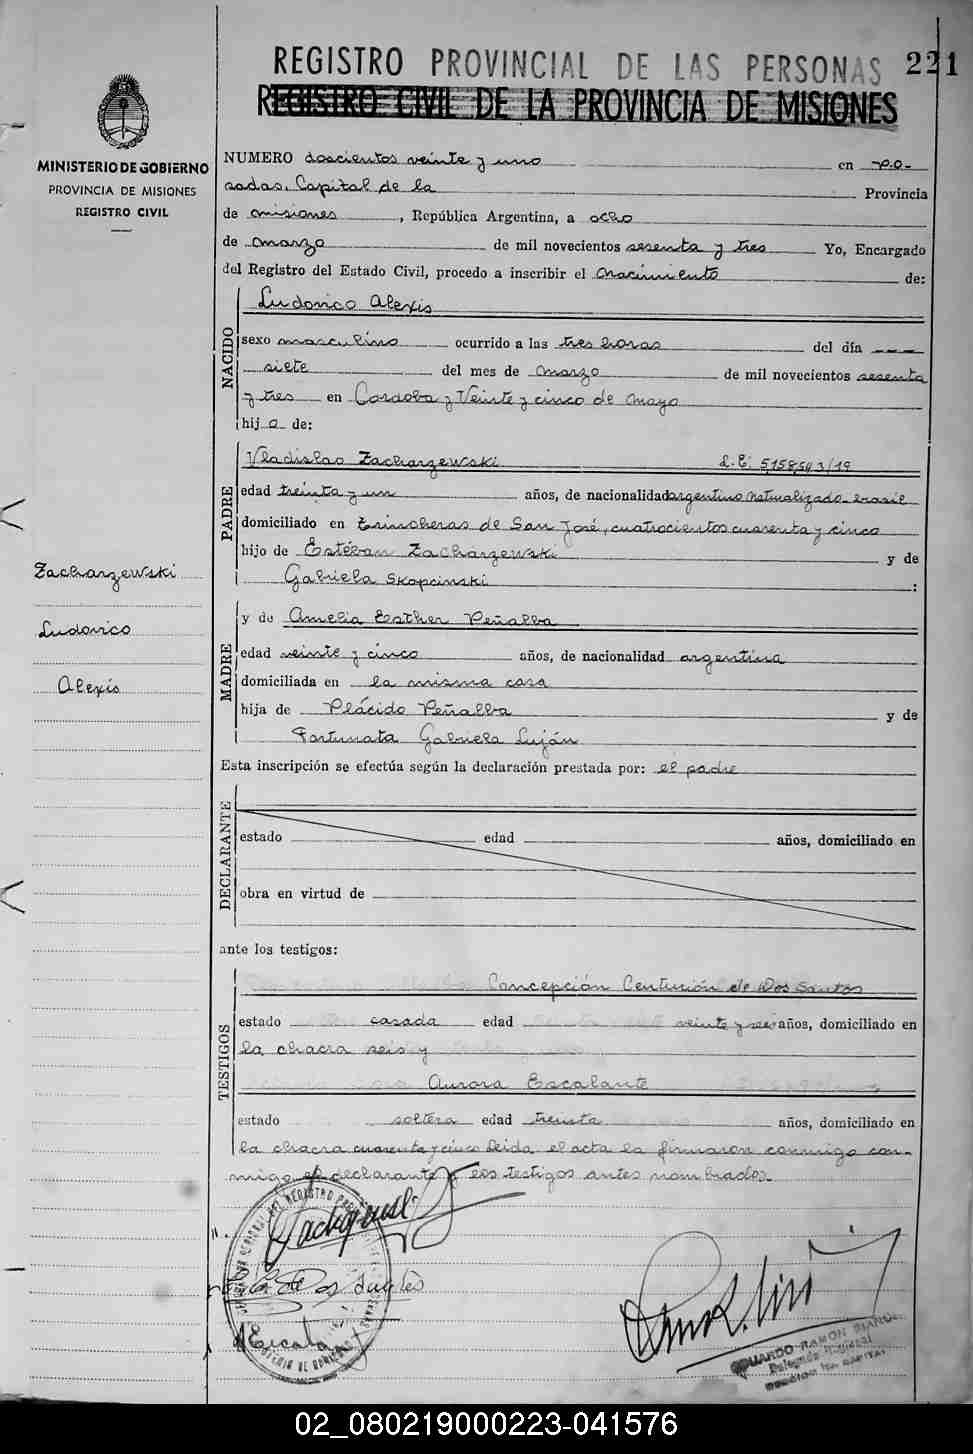 REGISTRO PROVINCIAL DE LAS PERSONAS 221
REGISTRO CIVIL DE LA PROVINCIA DE MISIONES
MINISTERIO DE GOBIERNO
PROVINCIA DE MISIONES
REGISTRO CIVIL
NUMERO doscientos veinte y uno en Po-
sadas, Capital de la Provincia
de misiones, República Argentina, a ocho
de marzo de mil novecientos sesenta y tres Yo, Encargado
del Registro del Estado Civil, procedo a inscribir el nacimiento de:
NACIDO
Ludovico Alexis
sexo masculino ocurrido a las tres horas del día
siete del mes de marzo de mil novecientos sesenta
y tres en Cordoba y Veinte y cinco de mayo
hijo de:
PADRE
Vladislao Zacharzewski L.E. 5158543/19
edad treinta y un años, de nacionalidad argentino naturalizado-brasil
domiciliado en Trincheras de San José, cuatrocientos cuarenta y cinco
hijo de Estéban Zacharzewski y de
Gabriela Skopcinski :
MADRE
y de Amelia Esther Peñalba
edad veinte y cinco años, de nacionalidad argentina
domiciliada en la misma casa
hija de Plácido Peñalba y de
Fortunata Gabriela Luján
Zacharzewski
Ludovico
Alexis
Esta inscripción se efectúa según la declaración prestada por: el padre
DECLARANTE
estado edad años, domiciliado en
obra en virtud de
ante los testigos:
TESTIGOS
Concepción Centurión de Dos Santos
estado casada edad veinte y seis años, domiciliado en
la chacra seis y
Aurora Escalante
estado soltera edad treinta años, domiciliado en
la chacra cuarenta y cinco Leida el acta la firmaron conmigo con-
migo el declarante y los testigos antes nombrados.
Escalante
EDUARDO RAMON
Delegado Regional
02_080219000223-041576